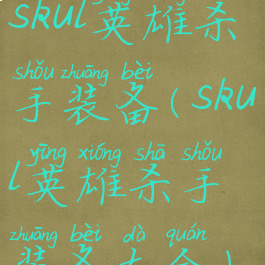 skul英雄杀
shǒu zhuāng bèi
手装备(sku
yīng xióng shā shǒu
l英雄杀手
zhuāng bèi dà quán
装备大全)